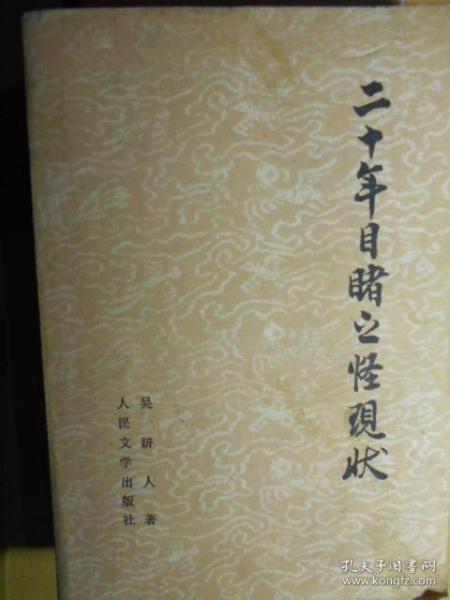 二十年目睹之怪現状
吴趼人著
人民文学出版社
孔夫子旧书网
www.kongfz.com